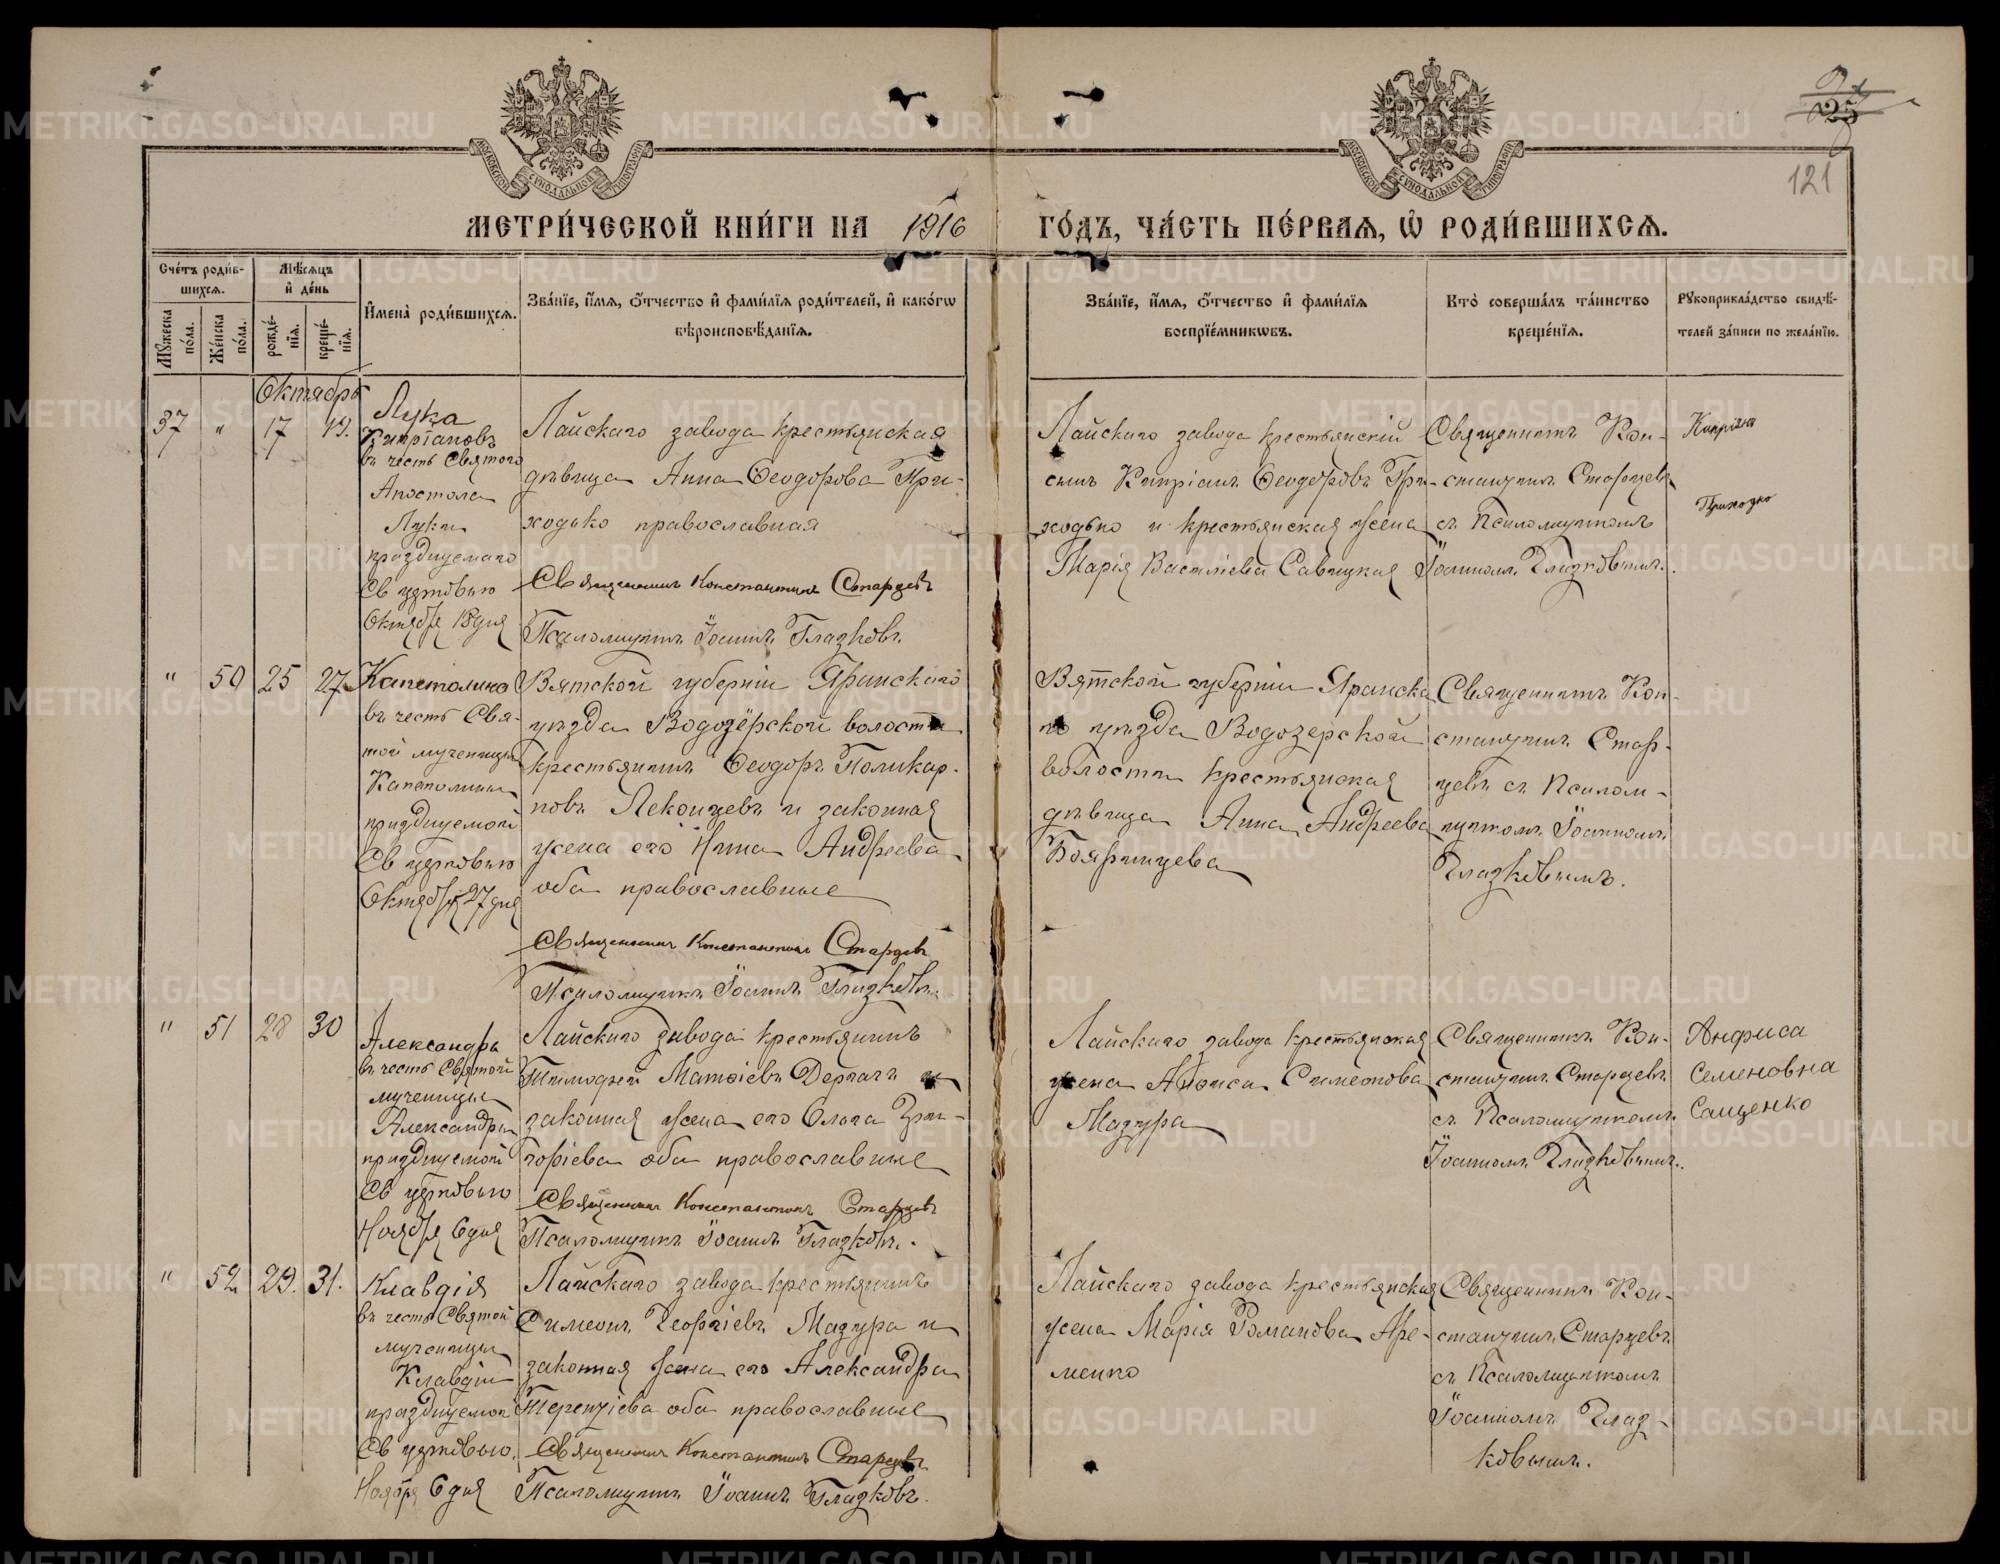 25
121
МЕТРИ́ЧЕСКОЙ КНИ́ГИ НА 1916 ГО́ДЪ, ЧА́СТЬ ПЕ́РВАѦ, Ѡ҆ РОДИ́ВШИХСѦ.
Сче́тъ роди́вшихсѧ.
Мꙋжеска по́ла.
Же́нска по́ла.
Мѣ́сѧцъ и҆ де́нь
рожде́нїѧ.
креще́нїѧ.
И҆мена̀ роди́вшихсѧ.
Зва́нїе, и҆́мѧ, ѻ҆́тчество и҆ фами́лїѧ роди́телей, и҆ како́гѡ
вѣроисповѣ́данїѧ.
Зва́нїе, и҆́мѧ, ѻ҆́тчество и҆ фами́лїѧ
воспрїе́мникѡвъ.
Кто̀ соверша́лъ та́инство
креще́нїѧ.
Рꙋкоприкла́дство свидѣ́-
телей за́писи по жела́нїю.
Октябрь
37 " 17 19.
Лука
Кипріановъ
въ честь Святого
Апостола
Луки
празднуемаго
Св церковью
Октября 18 дня
Лайскаго завода крестьянская
дѣвица Анна Ѳеодорова При-
ходько православная
Священникъ Константинъ Старцевъ
Псаломщикъ Іоаннъ Глазковъ.
Лайскаго завода крестьянскій
сынъ Кипріанъ Ѳеодоровъ При-
ходько и крестьянская жена
Марія Василіева Савицкая
Священникъ Кон-
стантинъ Старцевъ
съ Псаломщикомъ
Іоанномъ Глазковымъ.
Кипріянъ
Приходко
" 50 25 27.
Капетолина
въ честь Свя-
той мученицы
Капетолины
празднуемой
Св церковью
Октября 27 дня
Вятской губерніи Яранскаго
уѣзда Водозёрской волости
крестьянинъ Ѳеодоръ Поликар-
повъ Леконцевъ и законная
жена его Нина Андреева
оба православные
Священникъ Константинъ Старцевъ
Псаломщикъ Іоаннъ Глазковъ.
Вятской губерніи Яранска
го уѣзда Водозерской
волости крестьянская
дѣвица Анна Андреева
Бояринцева
Священникъ Кон-
стантинъ Стар-
цевъ съ Псалом-
щикомъ Іоанномъ
Глазковымъ.
" 51 28 30
Александра
въ честь Святой
мученицы
Александры
празднуемой
Св церковью
Ноября 6 дня
Лайскаго завода крестьянинъ
Тимоѳей Матѳіевъ Дергачъ и
законная жена его Ольга Гри-
горіева оба православные
Священникъ Константинъ Старцевъ
Псаломщикъ Іоаннъ Глазковъ.
Лайскаго завода крестьянская
жена Анѳиса Симеонова
Мазура
Священникъ Кон-
стантинъ Старцевъ
съ Псаломщикомъ
Іоанномъ Глазковымъ.
Анфиса
Семеновна
Сащенко
" 52 29. 31.
Клавдія
въ честь Святой
мученицы
Клавдіи
празднуемой
Св церковью.
Ноября 6 дня
Лайскаго завода крестьянинъ
Симеонъ Георгіевъ Мазура и
законная жена его Александра
Терентіева оба православные
Священникъ Константинъ Старцевъ
Псаломщикъ Іоаннъ Глазковъ.
Лайскаго завода крестьянская
жена Марія Романова Яре-
менко
Священникъ Кон-
стантинъ Старцевъ
съ Псаломщикомъ
Іоанномъ Глаз-
ковымъ.